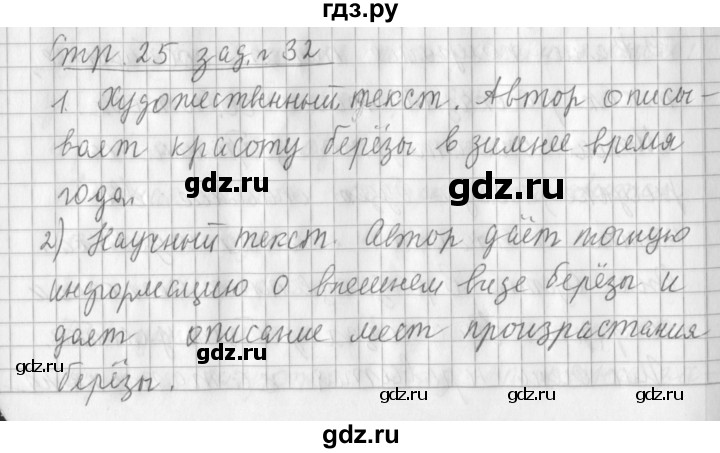 гдз.ру
Стр. 25 зад. 32
1. Художественный текст. Автор описы-
вает красоту берёзы в зимнее время
года.
gdz.ru
gdz.ru
2) Научный текст. Автор даёт точную
информацию о внешнем виде берёзы и
дает описание мест произрастания
gdz.ru
gdz.ru
берёзы.
gdz.ru
gdz.ru
gdz.ru
gdz.ru